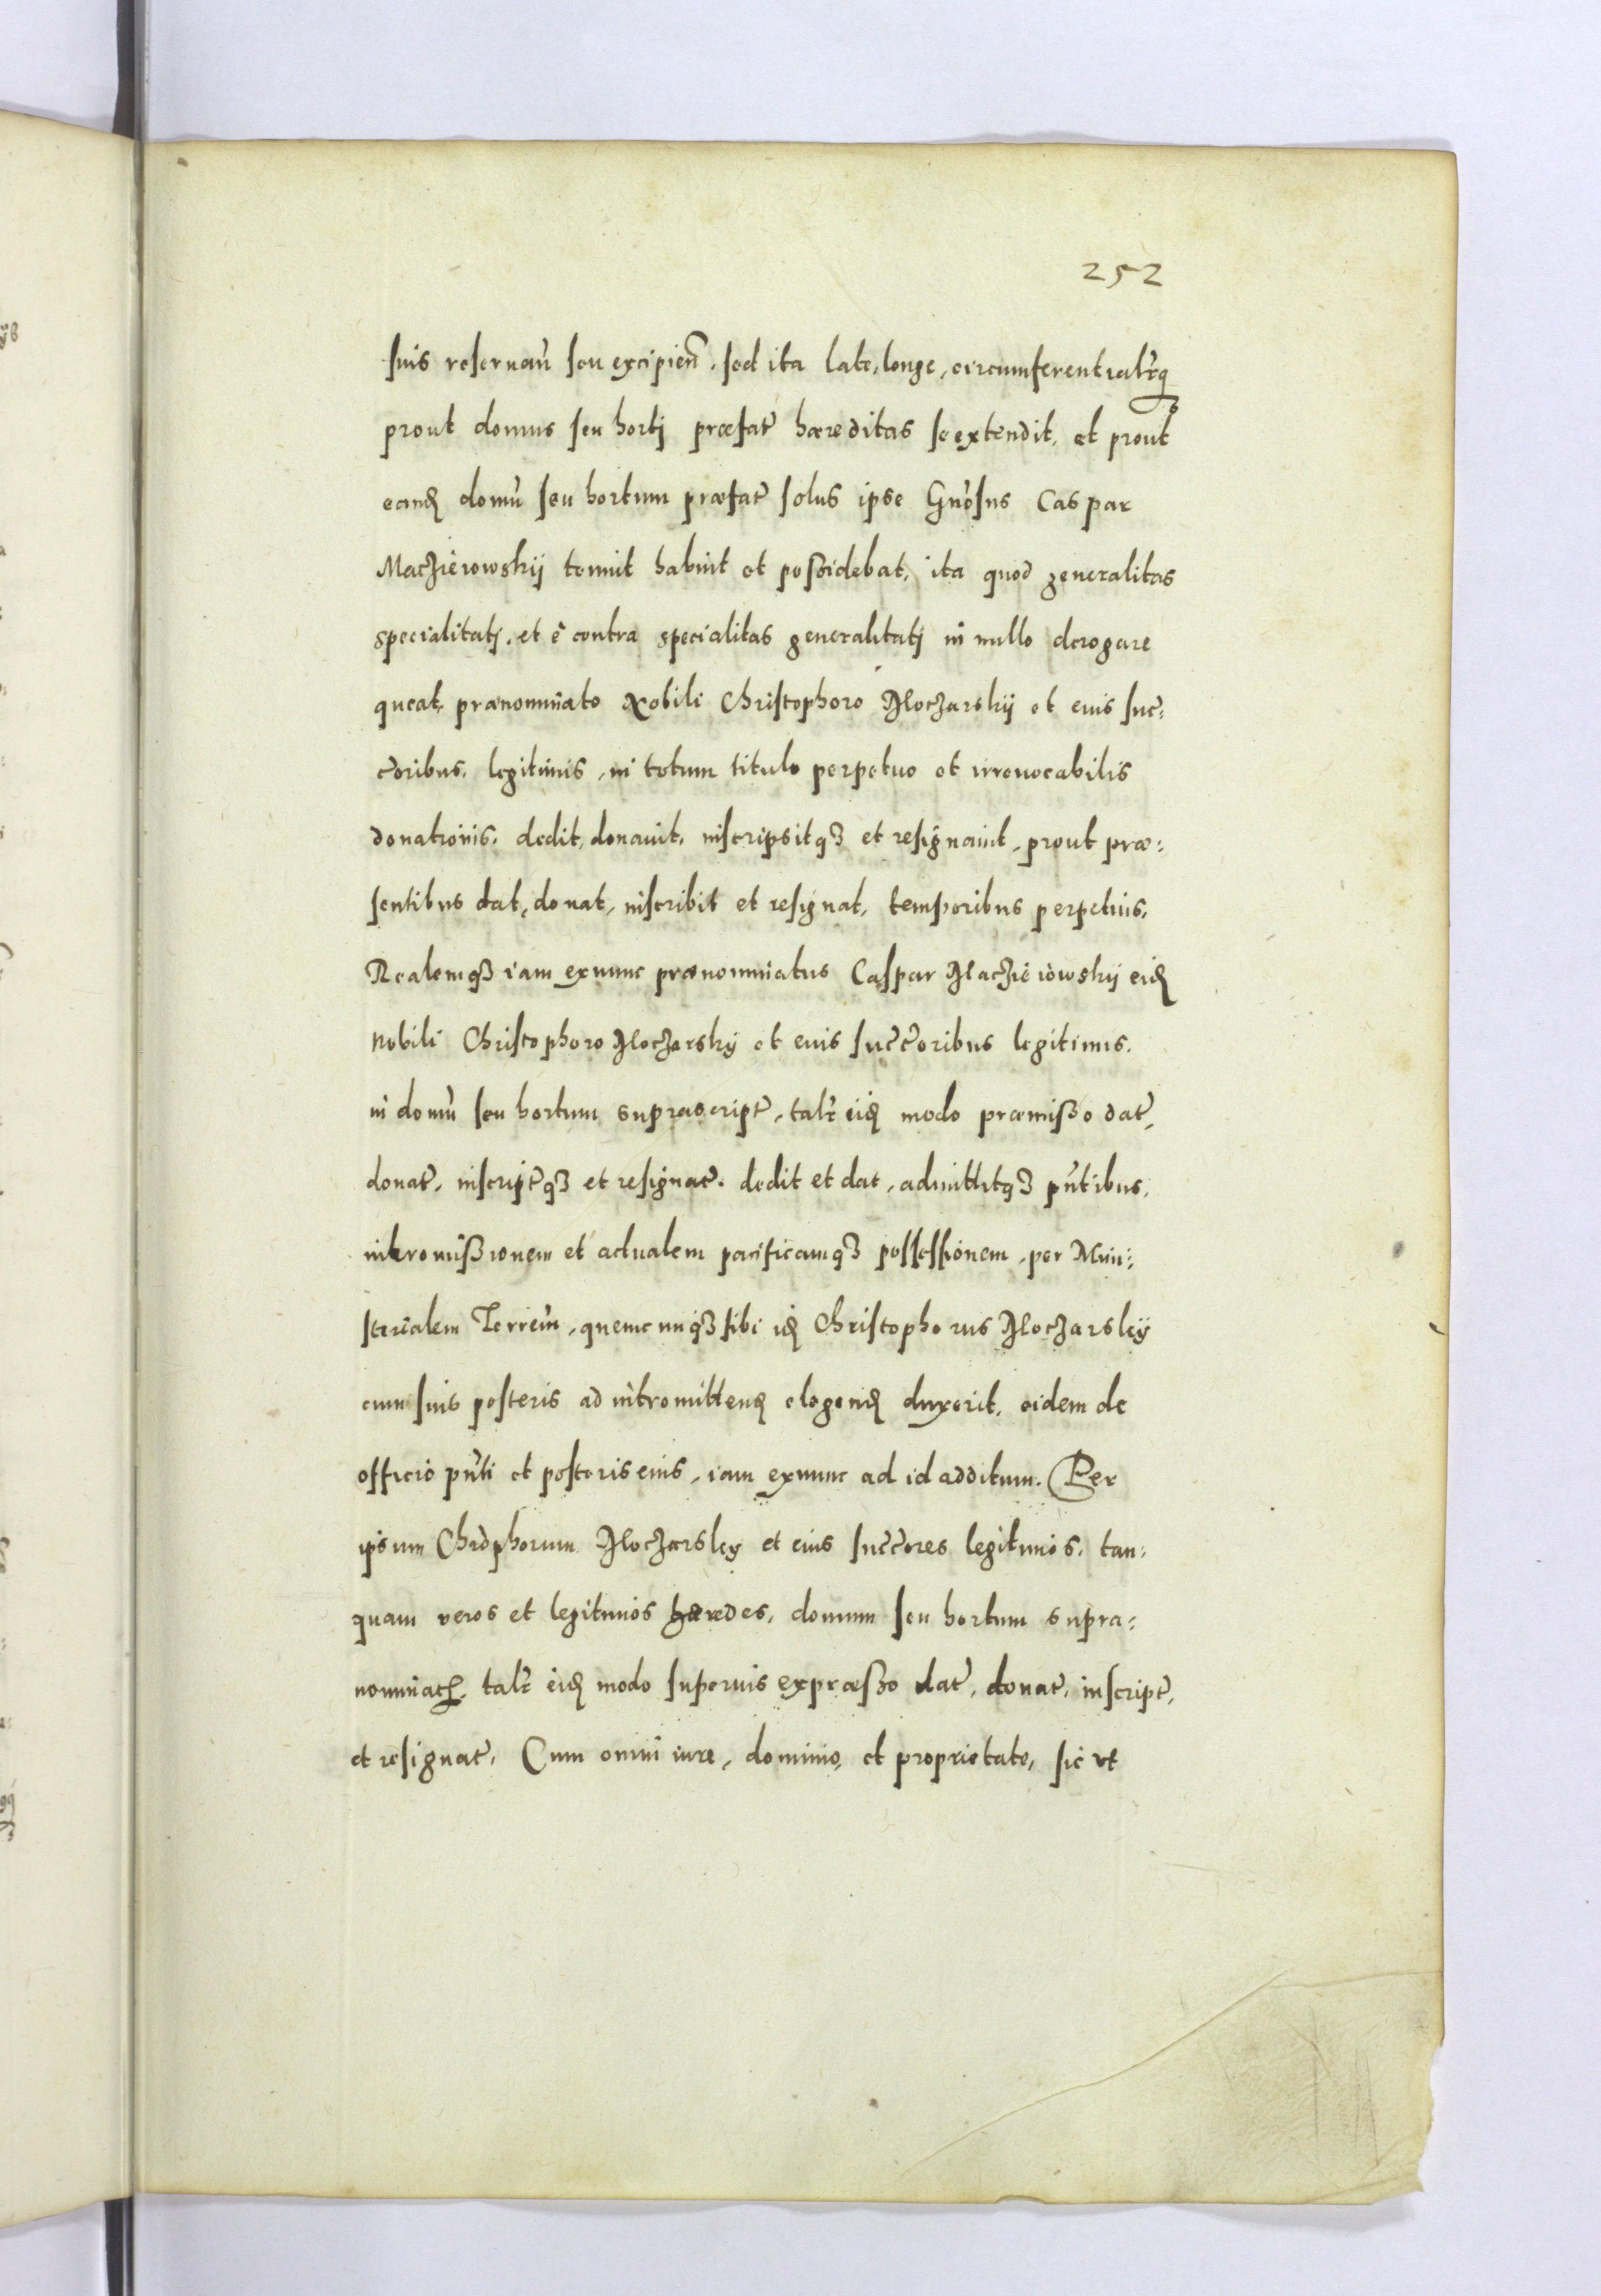 252
suis reseruan̄ seu excipien̄, sed ita late, longe, circumferentialr̄q₃
prout domus seu hortj præfat̄ hæreditas se extendit, et prout
eand̄ domū seu hortum præfat̄ solus ipse Gn̄osus Caspar
Maczieiowskij tenuit habuit et possidebat, ita quod generalitas
specialitatj, et è contra specialitas generalitatj in nullo derogare
queat, prænominato Nobili Christophoro Moczarskij et eius suc:
c̄oribus, legitimis, in totum titulo perpetuo et irreuocabilis
donationis, dedit, donauit, inscripsitq₃ et resignauit, prout præ:
sentibus dat, donat, inscribit et resignat, temporibus perpetuis,
Realemq₃ iam exnunc prænominatus Caspar Maczieiowskij eid̄
Nobili Christophoro Moczarskij et eius succ̄oribus legitimis,
in domū seu hortum suprascript̄, talr̄ eid̄ modo præmisso dat̄,
donat̄, inscript̄q₃ et resignat̄, dedit et dat, admittitq₃ pn̄tibus,
intromissionem et actualem pacificamq₃ possessionem, per Mini:
sterialem Terren̄, quemcunq₃ sibi id̄ Christophorus Moczarskij
cum suis posteris ad intromitten̄d̄ eligen̄d̄ duxerit, eidem de
officio pn̄ti et posteris eius, iam exnunc ad id additum. Per
ipsum Chr̄ophorum Moczarskij et eius succ̄ores legitimos, tan:
quam veros et legitimos hæredes, domum seu hortum supra:
nominat̄, talr̄ eid̄ modo superius expræsso dat̄, donat̄, inscript̄,
et resignat̄, Cum omni iure, dominio, et proprietate, sic vt